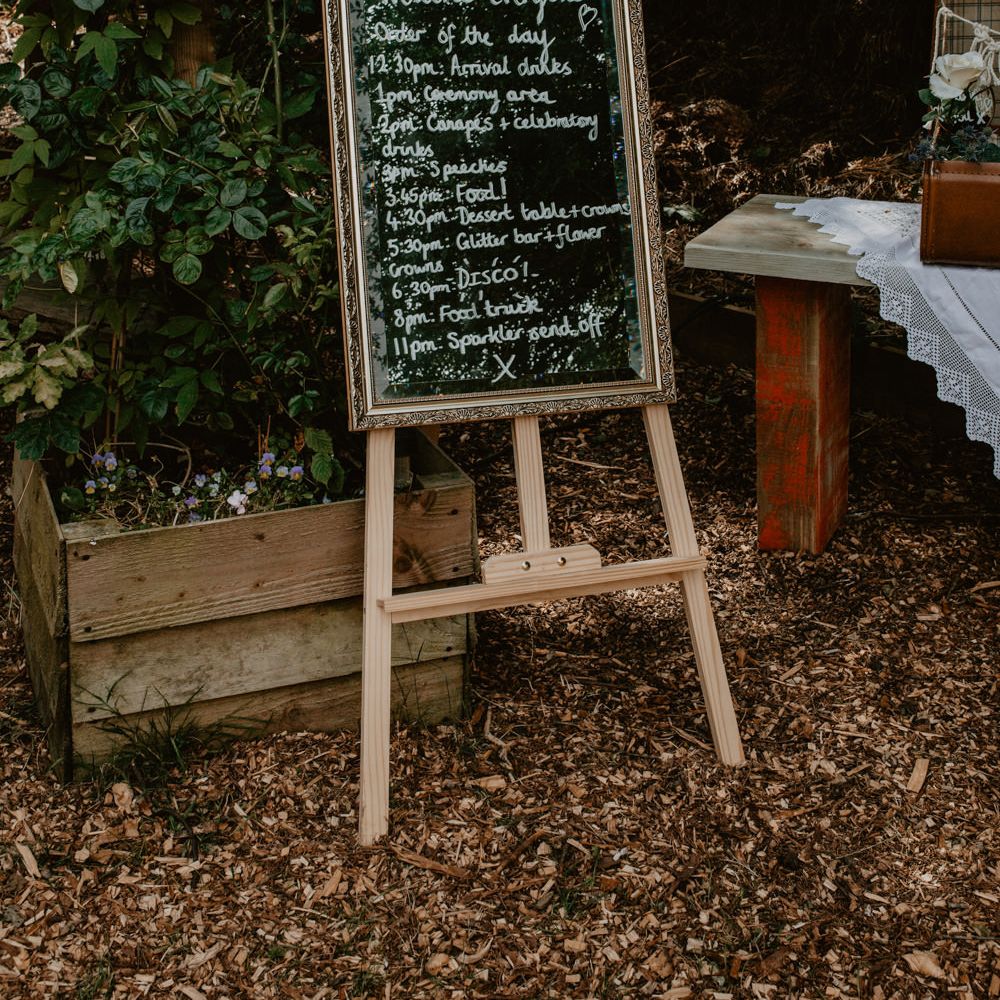 Order of the day
12:30pm: Arrival drinks
1pm: Ceremony area
2pm: Canapés + celebratory
drinks
3pm: Speeches
3:45pm: Food!
4:30pm: Dessert table + crowns
5:30pm: Glitter bar + flower
crowns
6:30pm: DISCO!
8pm: Food truck
11pm: Sparkler send off
X